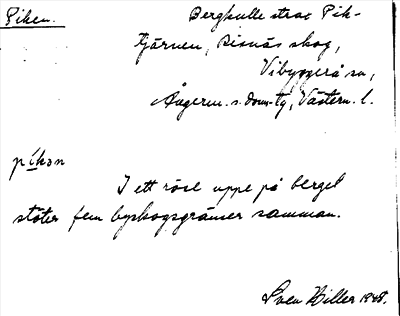 Piken. Bergkulle strax Pik-
tjärnen, Bisnäs skog,
Vibyggerå sn,
Ångerm. s. doms-tg, Västern. l.
píkən
I ett röse uppe på berget
stöter fem byskogsgränser samman.
Sven Hiller 1948.